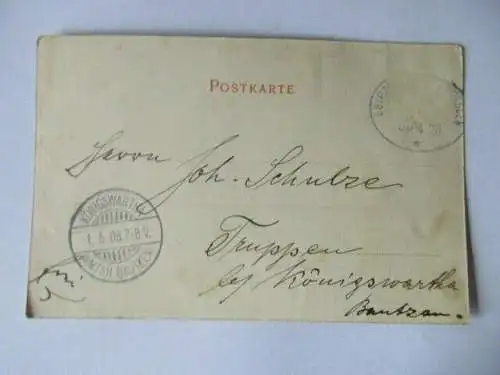 POSTKARTE
LEIPZIG
Herrn Joh. Schulze
KÖNIGSWARTHA
1. 5. 08. 7-8 V.
AMTSH. BAUTZEN
Truppen
bei Königswartha
Bautzen.